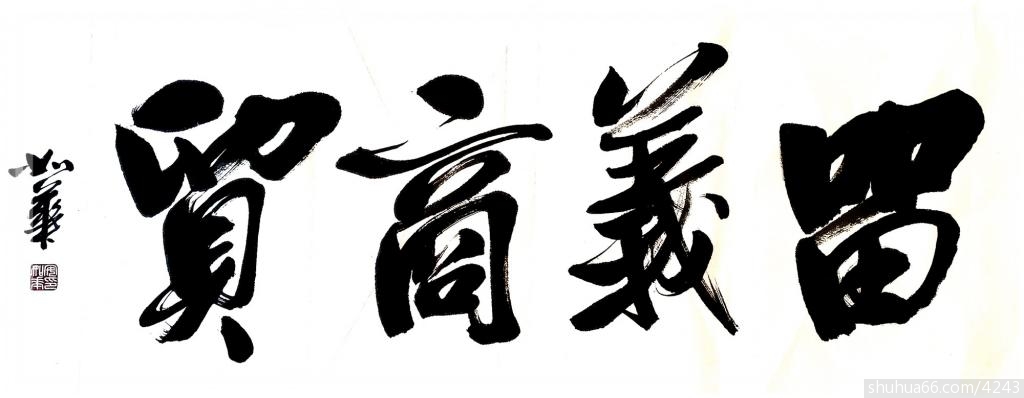 留義商貿
如華
shuhua66.com/4243